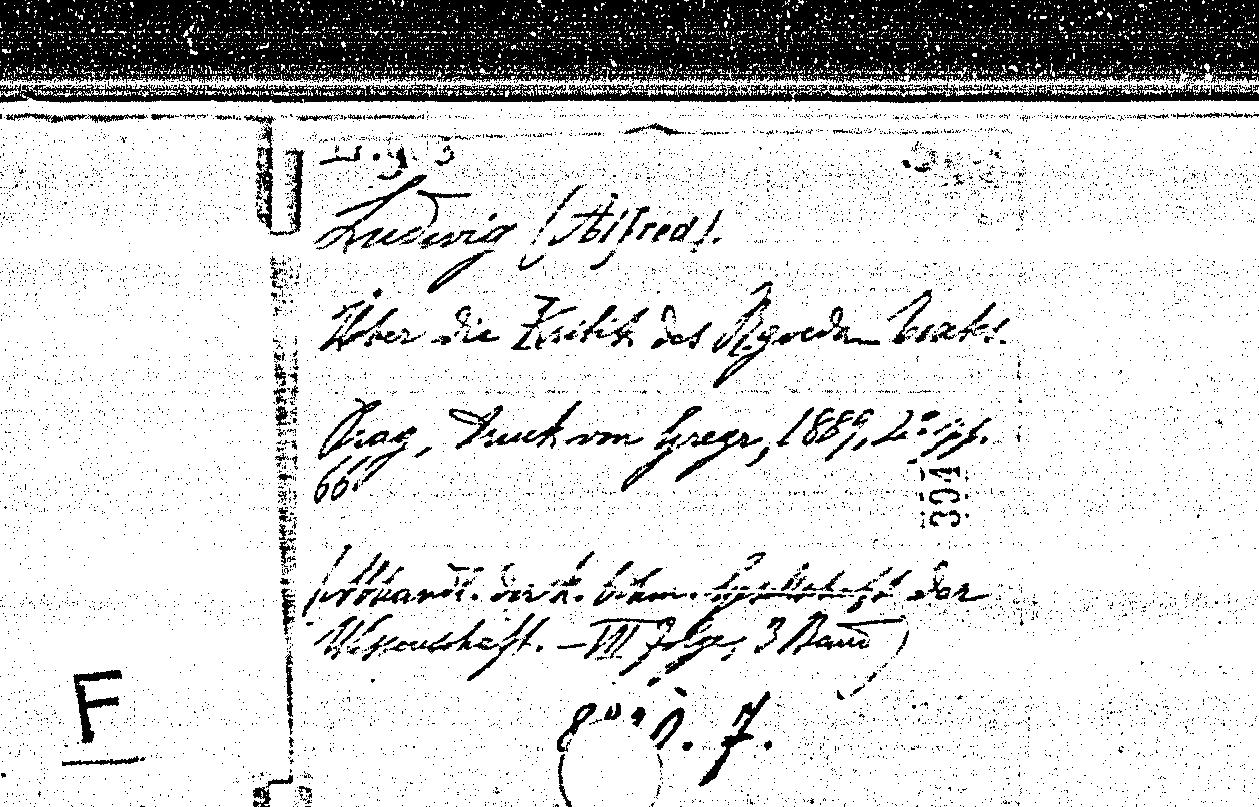 Ludwig (Alfred).
Über die Kritik des Rgveda-Texts.
Prag, Druck von Gregr, 1889, 2° pp.
66
304
(Abhandl. der k. böhm. Gesellschaft der
Wissenschaft. – VII Folge, 3 Band)
F
8°
7.